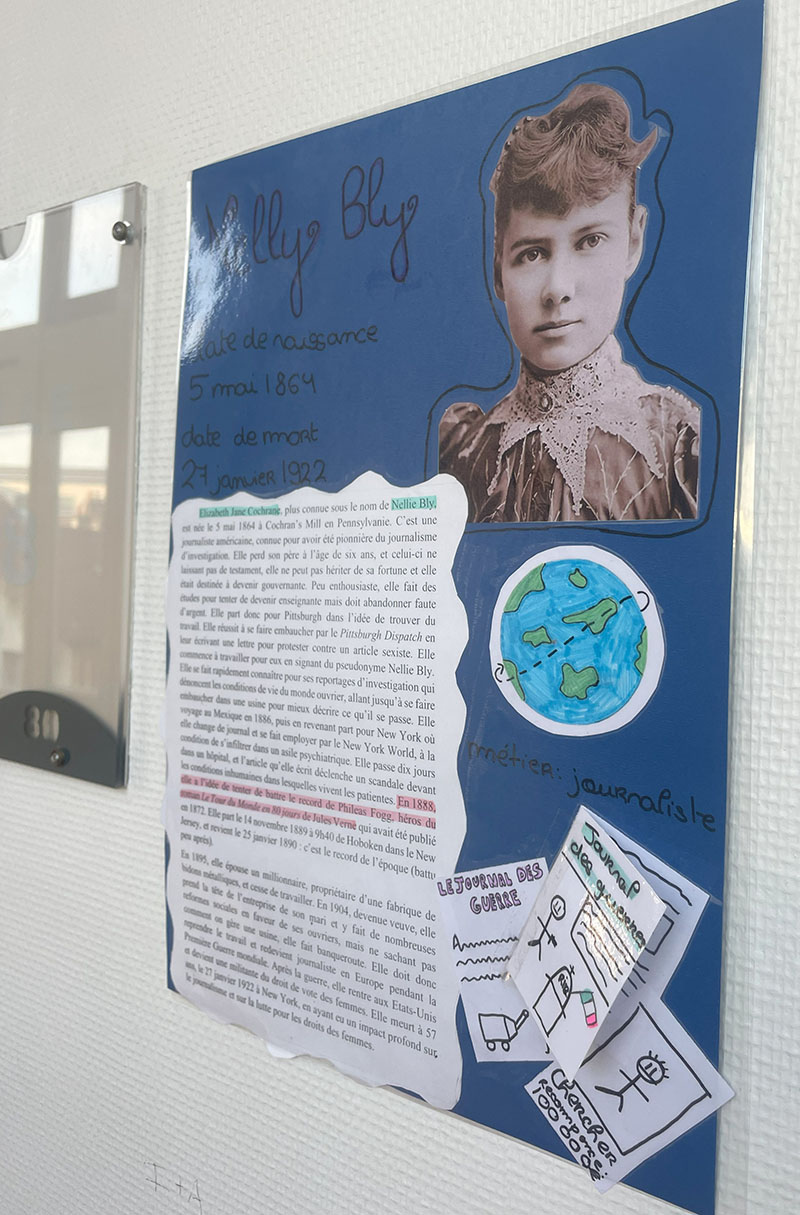 Nelly Bly
date de naissance
5 mai 1864
date de mort
27 janvier 1922
Elizabeth Jane Cochrane, plus connue sous le nom de Nellie Bly,
est née le 5 mai 1864 à Cochran's Mill en Pennsylvanie. C'est une
journaliste américaine, connue pour avoir été pionnière du journalisme
d'investigation. Elle perd son père à l'âge de six ans, et celui-ci ne
laissant pas de testament, elle ne peut pas hériter de sa fortune et elle
était destinée à devenir gouvernante. Peu enthousiaste, elle fait des
études pour tenter de devenir enseignante mais doit abandonner faute
d'argent. Elle part donc pour Pittsburgh dans l'idée de trouver du
travail. Elle réussit à se faire embaucher par le Pittsburgh Dispatch en
leur écrivant une lettre pour protester contre un article sexiste. Elle
commence à travailler pour eux en signant du pseudonyme Nellie Bly.
Elle se fait rapidement connaître pour ses reportages d'investigation qui
dénoncent les conditions de vie du monde ouvrier, allant jusqu'à se faire
embaucher dans une usine pour mieux décrire ce qu'il se passe. Elle
voyage au Mexique en 1886, puis en revenant part pour New York où
elle change de journal et se fait employer par le New York World, à la
condition de s'infiltrer dans un asile psychiatrique. Elle passe dix jours
dans un hôpital, et l'article qu'elle écrit déclenche un scandale devant
les conditions inhumaines dans lesquelles vivent les patientes. En 1888,
elle a l'idée de tenter de battre le record de Phileas Fogg, héros du
roman Le Tour du Monde en 80 jours de Jules Verne qui avait été publié
en 1872. Elle part le 14 novembre 1889 à 9h40 de Hoboken dans le New
Jersey, et revient le 25 janvier 1890 : c'est le record de l'époque (battu
peu après).
En 1895, elle épouse un millionnaire, propriétaire d'une fabrique de
bidons métalliques, et cesse de travailler. En 1904, devenue veuve, elle
prend la tête de l'entreprise de son mari et y fait de nombreuses
réformes sociales en faveur de ses ouvriers, mais ne sachant pas
comment on gère une usine, elle fait banqueroute. Elle doit donc
reprendre le travail et redevient journaliste en Europe pendant la
Première Guerre mondiale. Après la guerre, elle rentre aux Etats-Unis
et devient une militante du droit de vote des femmes. Elle meurt à 57
ans, le 27 janvier 1922 à New York, en ayant eu un impact profond sur
le journalisme et sur la lutte pour les droits des femmes.
métier: journaliste
LE JOURNAL DES
GUERRE
Journal
des
Chercher
recompence:
80